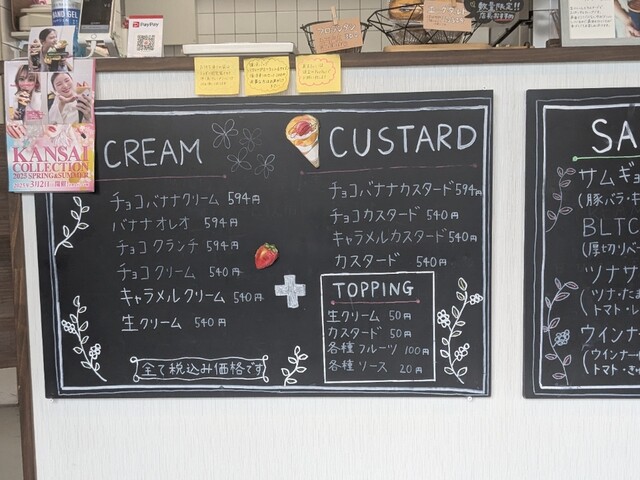 HAND GEL
PayPay
数量限定!!
KANSAI
COLLECTION
2025 SPRING&SUMMER
2025年3月2日(日)開催
CREAM
チョコバナナクリーム 594円
バナナオレオ 594円
チョコクランチ 594円
チョコクリーム 540円
キャラメルクリーム 540円
生クリーム 540円
全て税込み価格です
CUSTARD
チョコバナナカスタード 594円
チョコカスタード 540円
キャラメルカスタード 540円
カスタード 540円
TOPPING
生クリーム 50円
カスタード 50円
各種フルーツ 100円
各種ソース 20円
SA
サムギョ
(豚バラ・キ
BLTC
(厚切りベー
ツナサ
(ツナ・たま
トマト・レ
ウインナー
(ウインナー
トマト・きゅ